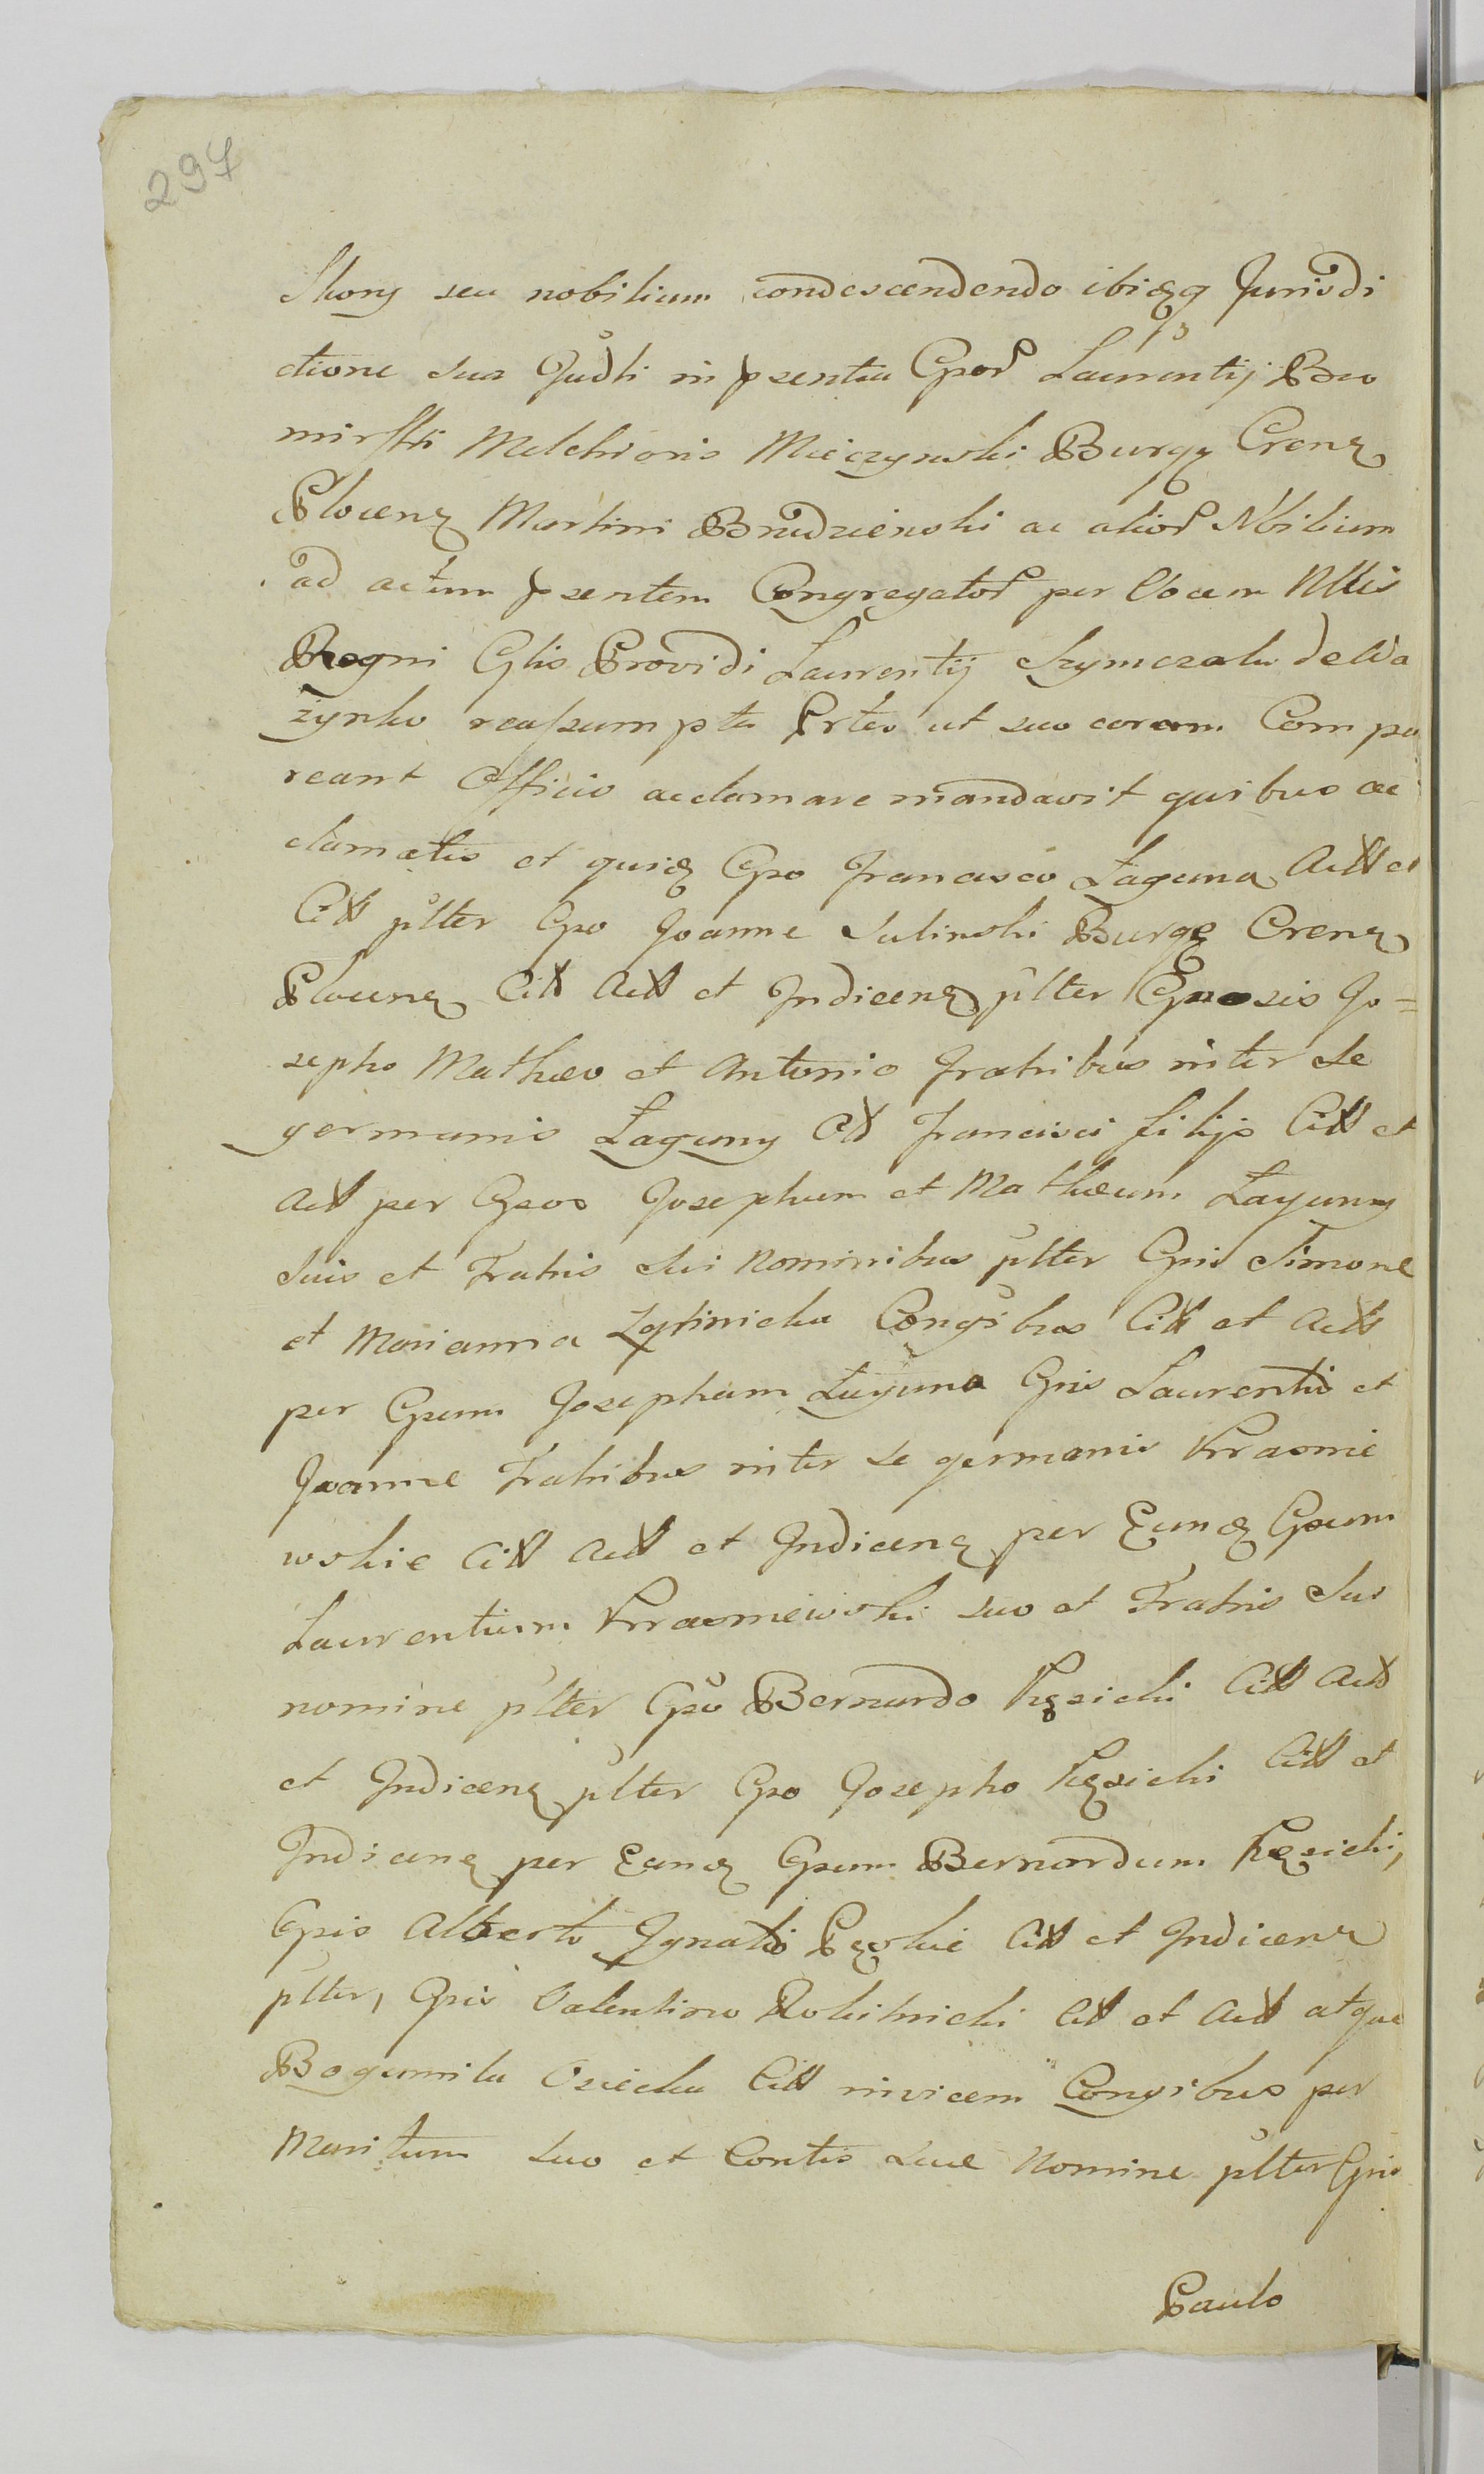 297
Skory seu nobilium condescendendo ibidęq Jurisdi
ctione sua Judli in psentia Gsor Laurentij Bro
mirski Melchioris Mieczynski Burgę Crenę
Plocenę Martini Brudzienski ac alior Nbilium
ad actum psentem Congregator per Vocem Mlis
Regni Glis Providi Laurentij Szymczak de Wa
zynko reassumpta Prtes ut suo coram Compa
reant Officio acclamare mandavit quibus ac
clamatis et quidę Gso Francisco Łaguna Actt et
Citt pltter Gso Joanne Sulinski Burgę Crenę
Plocenę Citt Actt et Indicenę pltter Gnosis Jo=
sepho Mathæo et Antonio Fratribus inter se
germanis Łaguny Ctt Francisci filijs Citt et
Actt per Gsos Josephum et Mathæum Łaguny
suis et Fratris sui Nominibus pltter Gsis Simone
et Marianna Conġibus Citt et Actt
per Gsum Josephum Łaguna Gsis Laurentio et
Joanne Fratribus inter se germanis Krasnie
wskie Citt Actt et Indicenę per Eundę Gsum
Laurentium Krasniewski suo et Fratris sui
nomine pltter Gso Bernardo Kęsicki Citt Actt
et Indicenę pltter Gso Josepho Kęsicki Citt et
Indicenę per Eundę Gsum Bernardum Kęsicki,
Gsis Alberto Ignatio Pęskie Citt et Indicenę
pltter, Gsis Valentino Rokitnicki Citt et Actt atque
Bogumila Osiecka Citt invicem Conġibus per
Maritum suo et Contis suæ Nomine pltter Gsis
Paulo